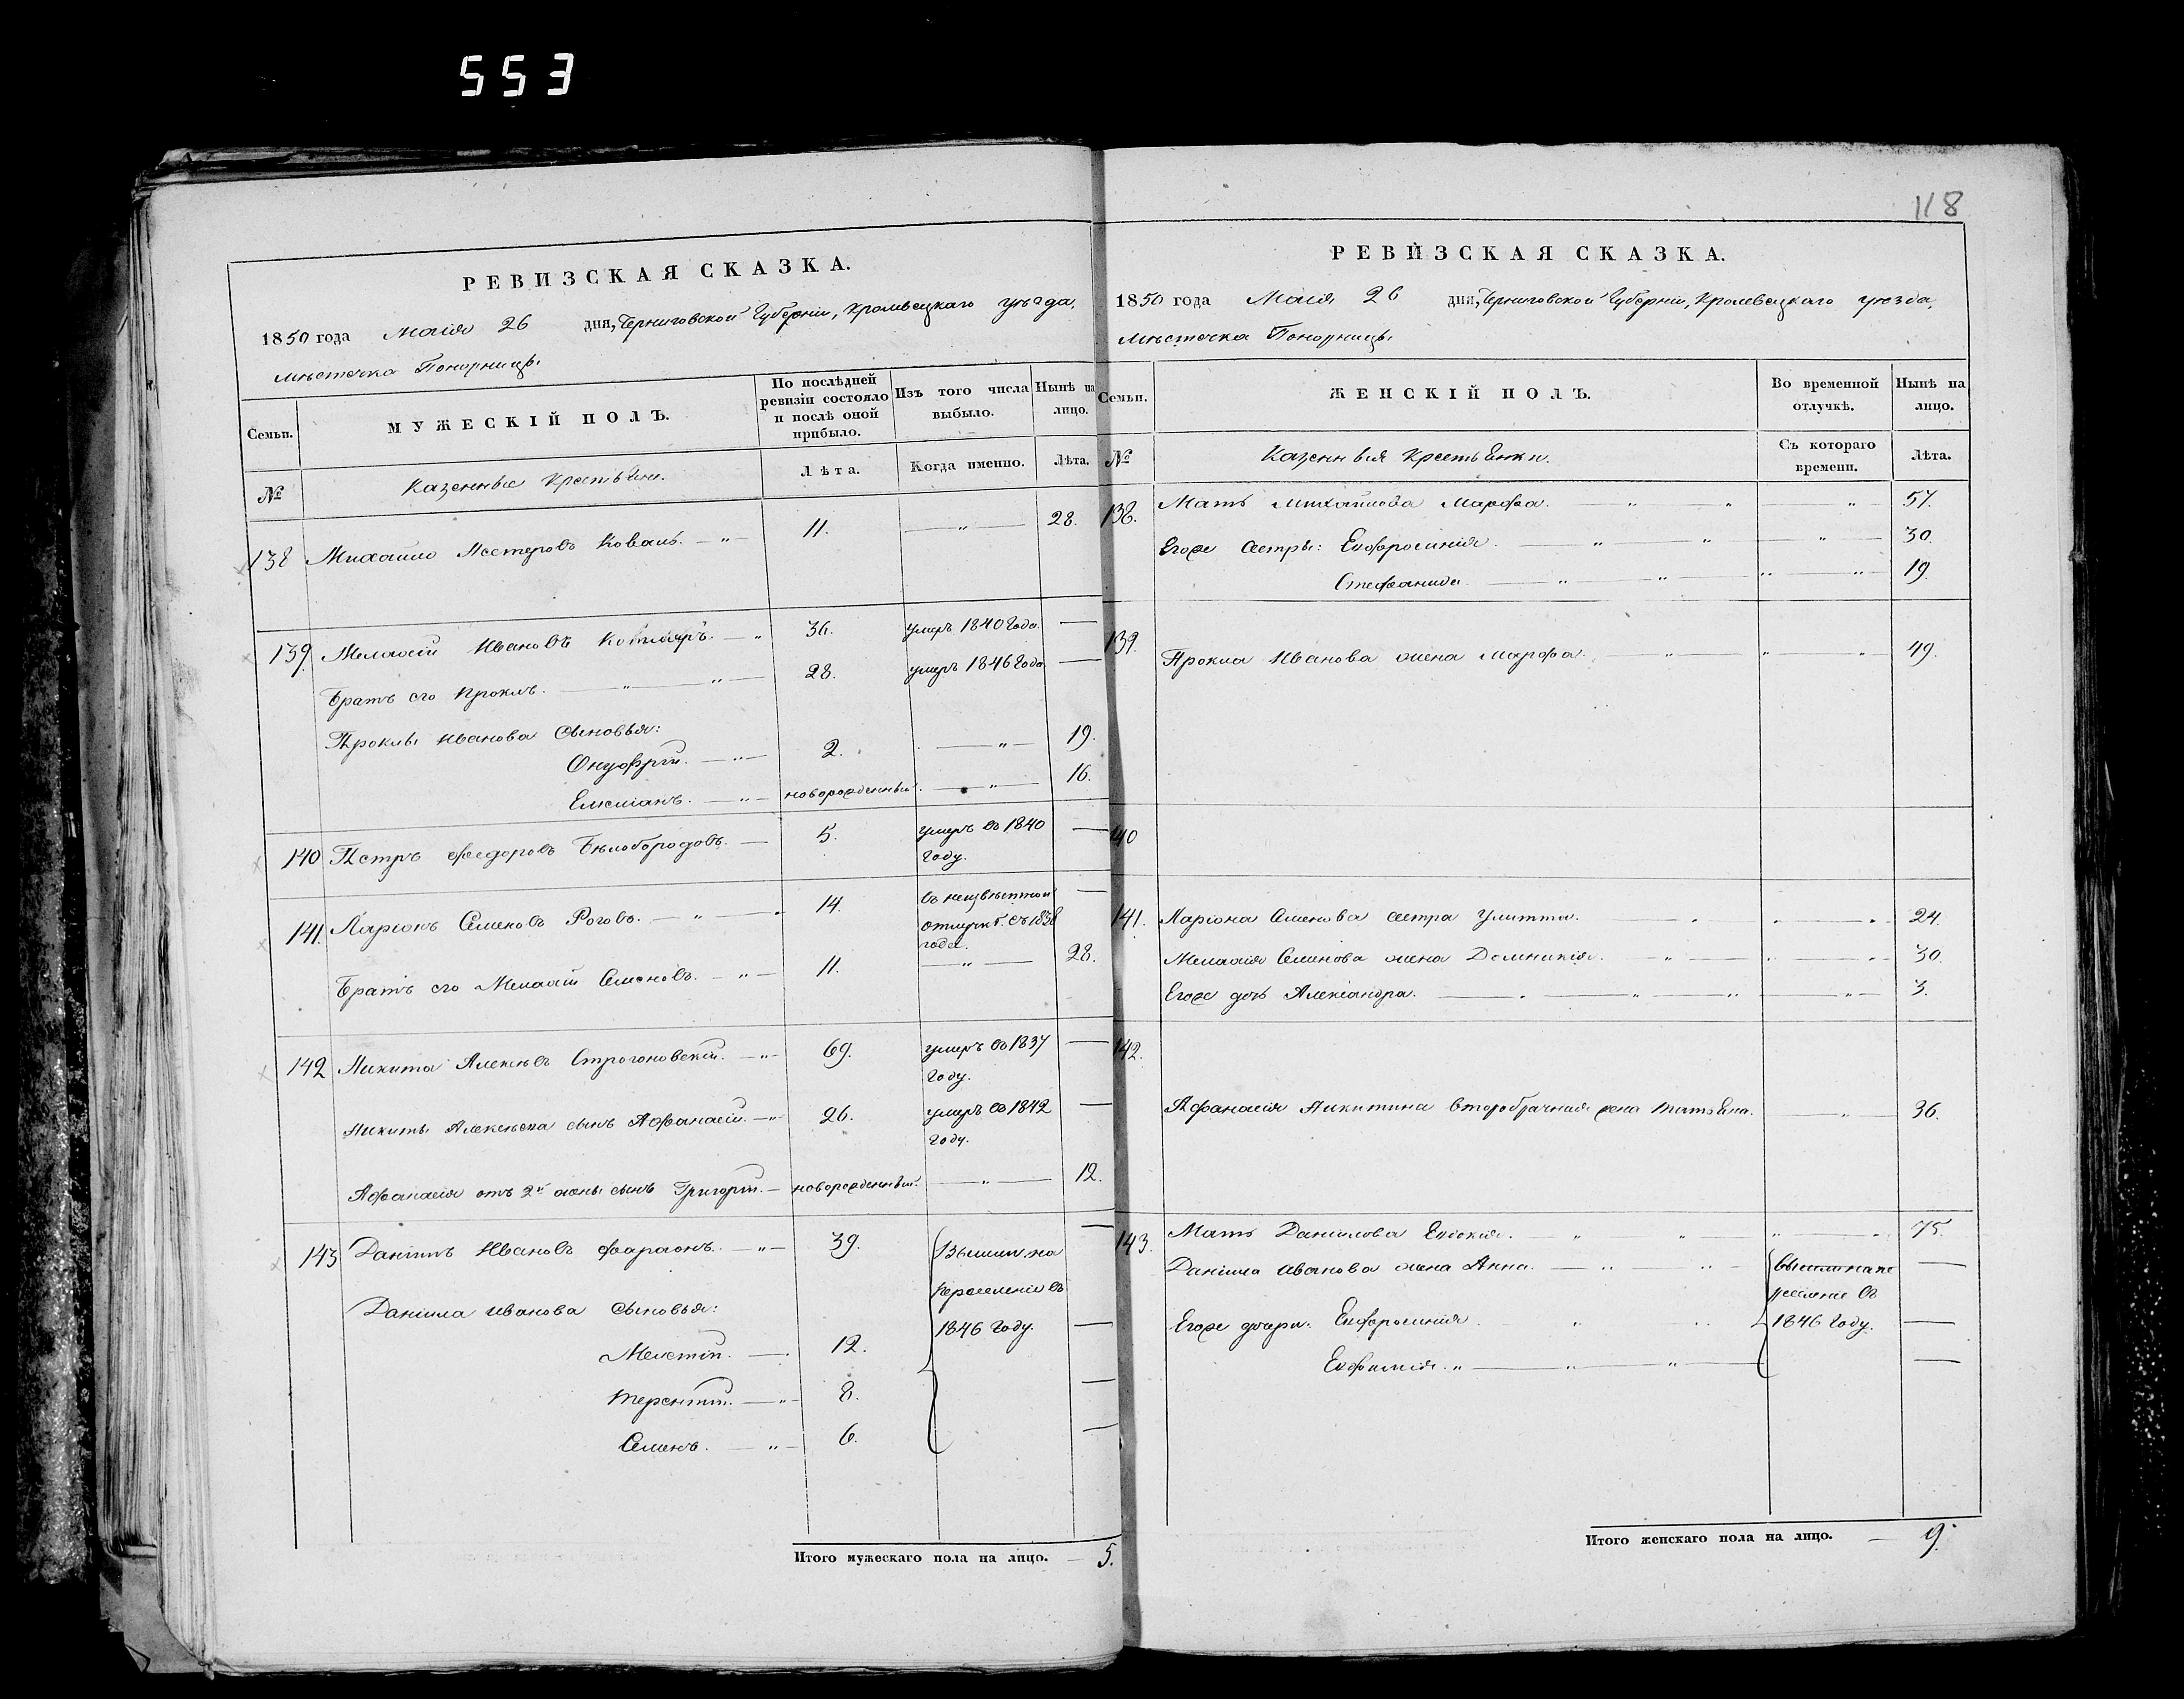 553
118
РЕВИЗСКАЯ СКАЗКА.
1850 года Маія 26 дня, Черниговской Губерніи, Кролевецкаго уѣзда,
мѣстечка Понорницы
Семьи.
МУЖЕСКІЙ ПОЛЪ.
По послѣдней ревизіи состояло и послѣ оной прибыло.
Изъ того числа выбыло.
Нынѣ на лицо.
№
Казенные Крестьяне.
Лѣта.
Когда именно.
Лѣта.
138 Михайло Нестеровъ Коваль. — „ — 11. — „ — 28.
139. Мелетій Ивановъ Котляръ. — „ 36. умеръ 1840 года. —
Братъ его Проклъ. — „ — „ — 28. умеръ 1846 года —
Проклы Иванова Сыновья:
Онуфрій. — „ — 2. — „ — 19.
Емеліанъ. — „ — новорожденный. — „ — 16.
140 Петръ Федоровъ Бѣлобородовъ. — 5. умеръ въ 1840 —
году.
141. Ларіонъ Семеновъ Роговъ. — „ — 14. въ неизвѣстной —
отлучкѣ съ 1838
года.
Братъ его Мелетій Семеновъ. — „ — 11. — „ — 28.
142 Никита Алексѣевъ Строгоновскій. — „ — 69. умеръ въ 1837 —
году.
Никиты Алексѣева сынъ Афанасій. — „ 26. умеръ въ 1842 —
году.
Афанасія отъ 2й жены сынъ Григорій. — новорожденный. — „ — 12.
143 Даніилъ Ивановъ Фараонъ. — „ — 39. —
на
Даніила Иванова Сыновья: переселеніе въ
1846 году. —
12.
Терентій. — „ — 8. —
Семенъ. — „ — 6. —
Итого мужескаго пола на лицо. — 5.
РЕВИЗСКАЯ СКАЗКА.
1850 года Маія 26 дня, Черниговской Губерніи, Кролевецкаго уѣзда,
мѣстечка Понорницы
Семьи.
ЖЕНСКІЙ ПОЛЪ.
Во временной отлучкѣ.
Нынѣ на лицо.
№
Казенныя Крестьянки.
Съ котораго времени.
Лѣта.
138. Мать Михайлова Марфа. — „ — „ — „ — 57.
Егоже сестры: Евфросинія. — „ — „ — „ — 30.
Стефанида. — „ — „ — „ — „ — 19.
139. Прокла Иванова жена Марфа. — „ — „ — „ — 49.
140
141. Ларіона Семенова сестра Улитта. — „ — „ — „ — 24.
Мелетія Семенова жена Домникія. — „ — „ — „ — 30.
Егоже дочь Александра. — „ — „ — „ — „ — 3.
142.
Афанасія Никитина второбрачная жена Татьяна. — „ — 36.
143. Мать Данилова Евдокія. „ — „ — „ — „ 75.
Даніила Иванова жена Анна. — „ — „ —
Егоже дочери: Евфросинія. „ — „ 1846 году. —
Евфимія. „ — „ — „ — —
Итого женскаго пола на лицо. — 9.